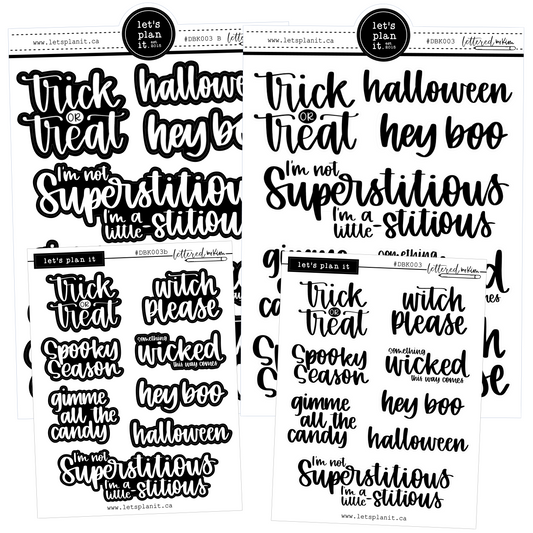 let's
plan
it.
est.
2015
www.letsplanit.
#DBK003 B
trick
OR
treat
halloween
hey boo
I'm not
Superstitious
I'm a
little -stitious
let's
plan
it.
est.
2015
www.letsplanit.ca
#DBK003
lettered by kim
trick
OR
treat
halloween
hey boo
I'm not
Superstitious
I'm a
little -stitious
gimme
something
let's plan it
#DBK003b
lettered by kim
trick
OR
treat
witch
please
Spooky
Season
something
wicked
this way comes
gimme
all the
candy
hey boo
halloween
I'm not
Superstitious
I'm a
little -stitious
www.letsplanit.ca
let's plan it
#DBK003
lettered by kim
trick
OR
treat
witch
please
Spooky
Season
something
wicked
this way comes
gimme
all the
candy
hey boo
halloween
I'm not
Superstitious
I'm a
little -stitious
www.letsplanit.ca